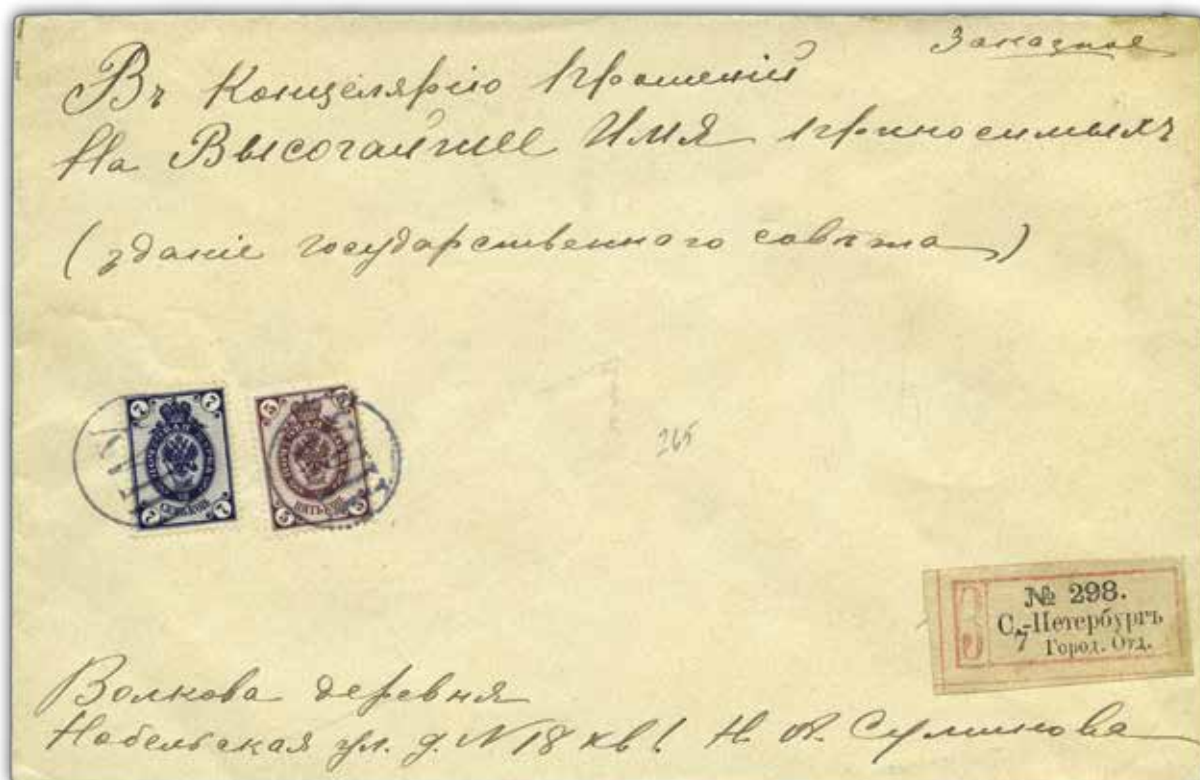 Заказное
Въ Канцелярію Прошеній
На Высочайшее Имя приносимыхъ
(зданіе государственнаго совѣта)
7 7
СЕМЬ КОП.
7 7
5
ПЯТЬ КОП.
5 5
265
№ 298.
С.-Петербургъ
7 Город. Отд.
З
Волкова деревня
Нобельская ул. д. N 18 кв 1 Н. А. Суминова